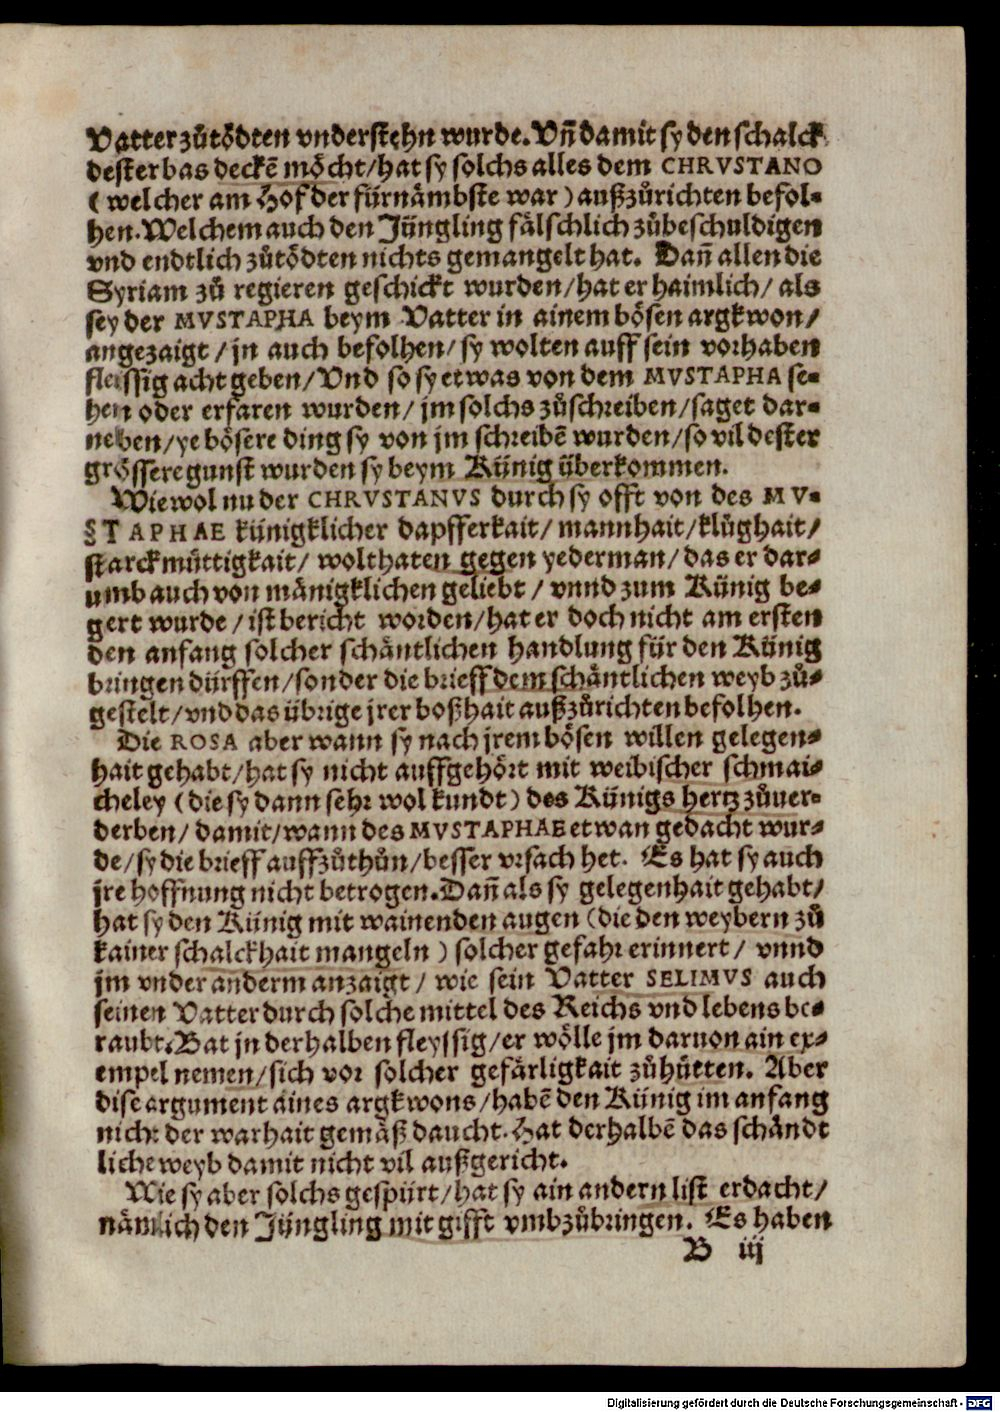 Vatter zůtödten vnderstehn wurde. Vñ damit sy den schalck
dester bas deckē möcht/hat sy solchs alles dem CHRVSTANO
(welcher am Hof der fürnämbste war) außzůrichten befol-
hen. Welchem auch den Jüngling fälschlich zůbeschuldigen
vnd endtlich zůtödten nichts gemangelt hat. Dañ allen die
Syriam zů regieren geschickt wurden/hat er haimlich/ als
sey der MVSTAPHA beym Vatter in ainem bösen argkwon/
angezaigt/jn auch befolhen/sy wolten auff sein vorhaben
fleissig acht geben/Vnd so sy etwas von dem MVSTAPHA se-
hen oder erfaren wurden/jm solchs zůschreiben/saget dar-
neben/ye bösere ding sy von jm schreibē wurden/so vil dester
grössere gunst wurden sy beym Künig überkommen.
Wiewol nu der CHRVSTANVS durch sy offt von des MV-
STAPHAE künigklicher dapfferkait/mannhait/klůghait/
starckmüttigkait/ wolthaten gegen yederman/das er dar-
umb auch von mänigklichen geliebt/vnnd zum Künig be-
gert wurde/ist bericht worden/hat er doch nicht am ersten
den anfang solcher schäntlichen handlung für den Künig
bringen dürffen/sonder die brieff dem schäntlichen weyb zů-
gestelt/vnd das übrige jrer boßhait außzůrichten befolhen.
Die ROSA aber wann sy nach jrem bösen willen gelegen-
hait gehabt/hat sy nicht auffgehört mit weibischer schmai-
cheley (die sy dann sehr wol kundt) des Künigs hertz zůuer-
derben/damit/wann des MVSTAPHAE etwan gedacht wur-
de/sy die brieff auffzůthůn/besser vrsach het. Es hat sy auch
jre hoffnung nicht betrogen. Dañ als sy gelegenhait gehabt/
hat sy den Künig mit wainenden augen (die den weybern zů
kainer schalckhait mangeln) solcher gefahr erinnert/ vnnd
jm vnder anderm anzaigt/ wie sein Vatter SELIMVS auch
seinen Vatter durch solche mittel des Reichs vnd lebens be-
raubt. Bat jn derhalben fleyssig/er wölle jm daruon ain ex-
empel nemen/sich vor solcher gefärligkait zůhütten. Aber
dise argument aines argkwons/habē den Künig im anfang
nicht der warhait gemäß daucht. Hat derhalbē das schändt
liche weyb damit nicht vil außgericht.
Wie sy aber solchs gespürt/hat sy ain andern list erdacht/
nämlich den Jüngling mit gifft vmbzůbringen. Es haben
B iij
Digitalisierung gefördert durch die Deutsche Forschungsgemeinschaft - DFG